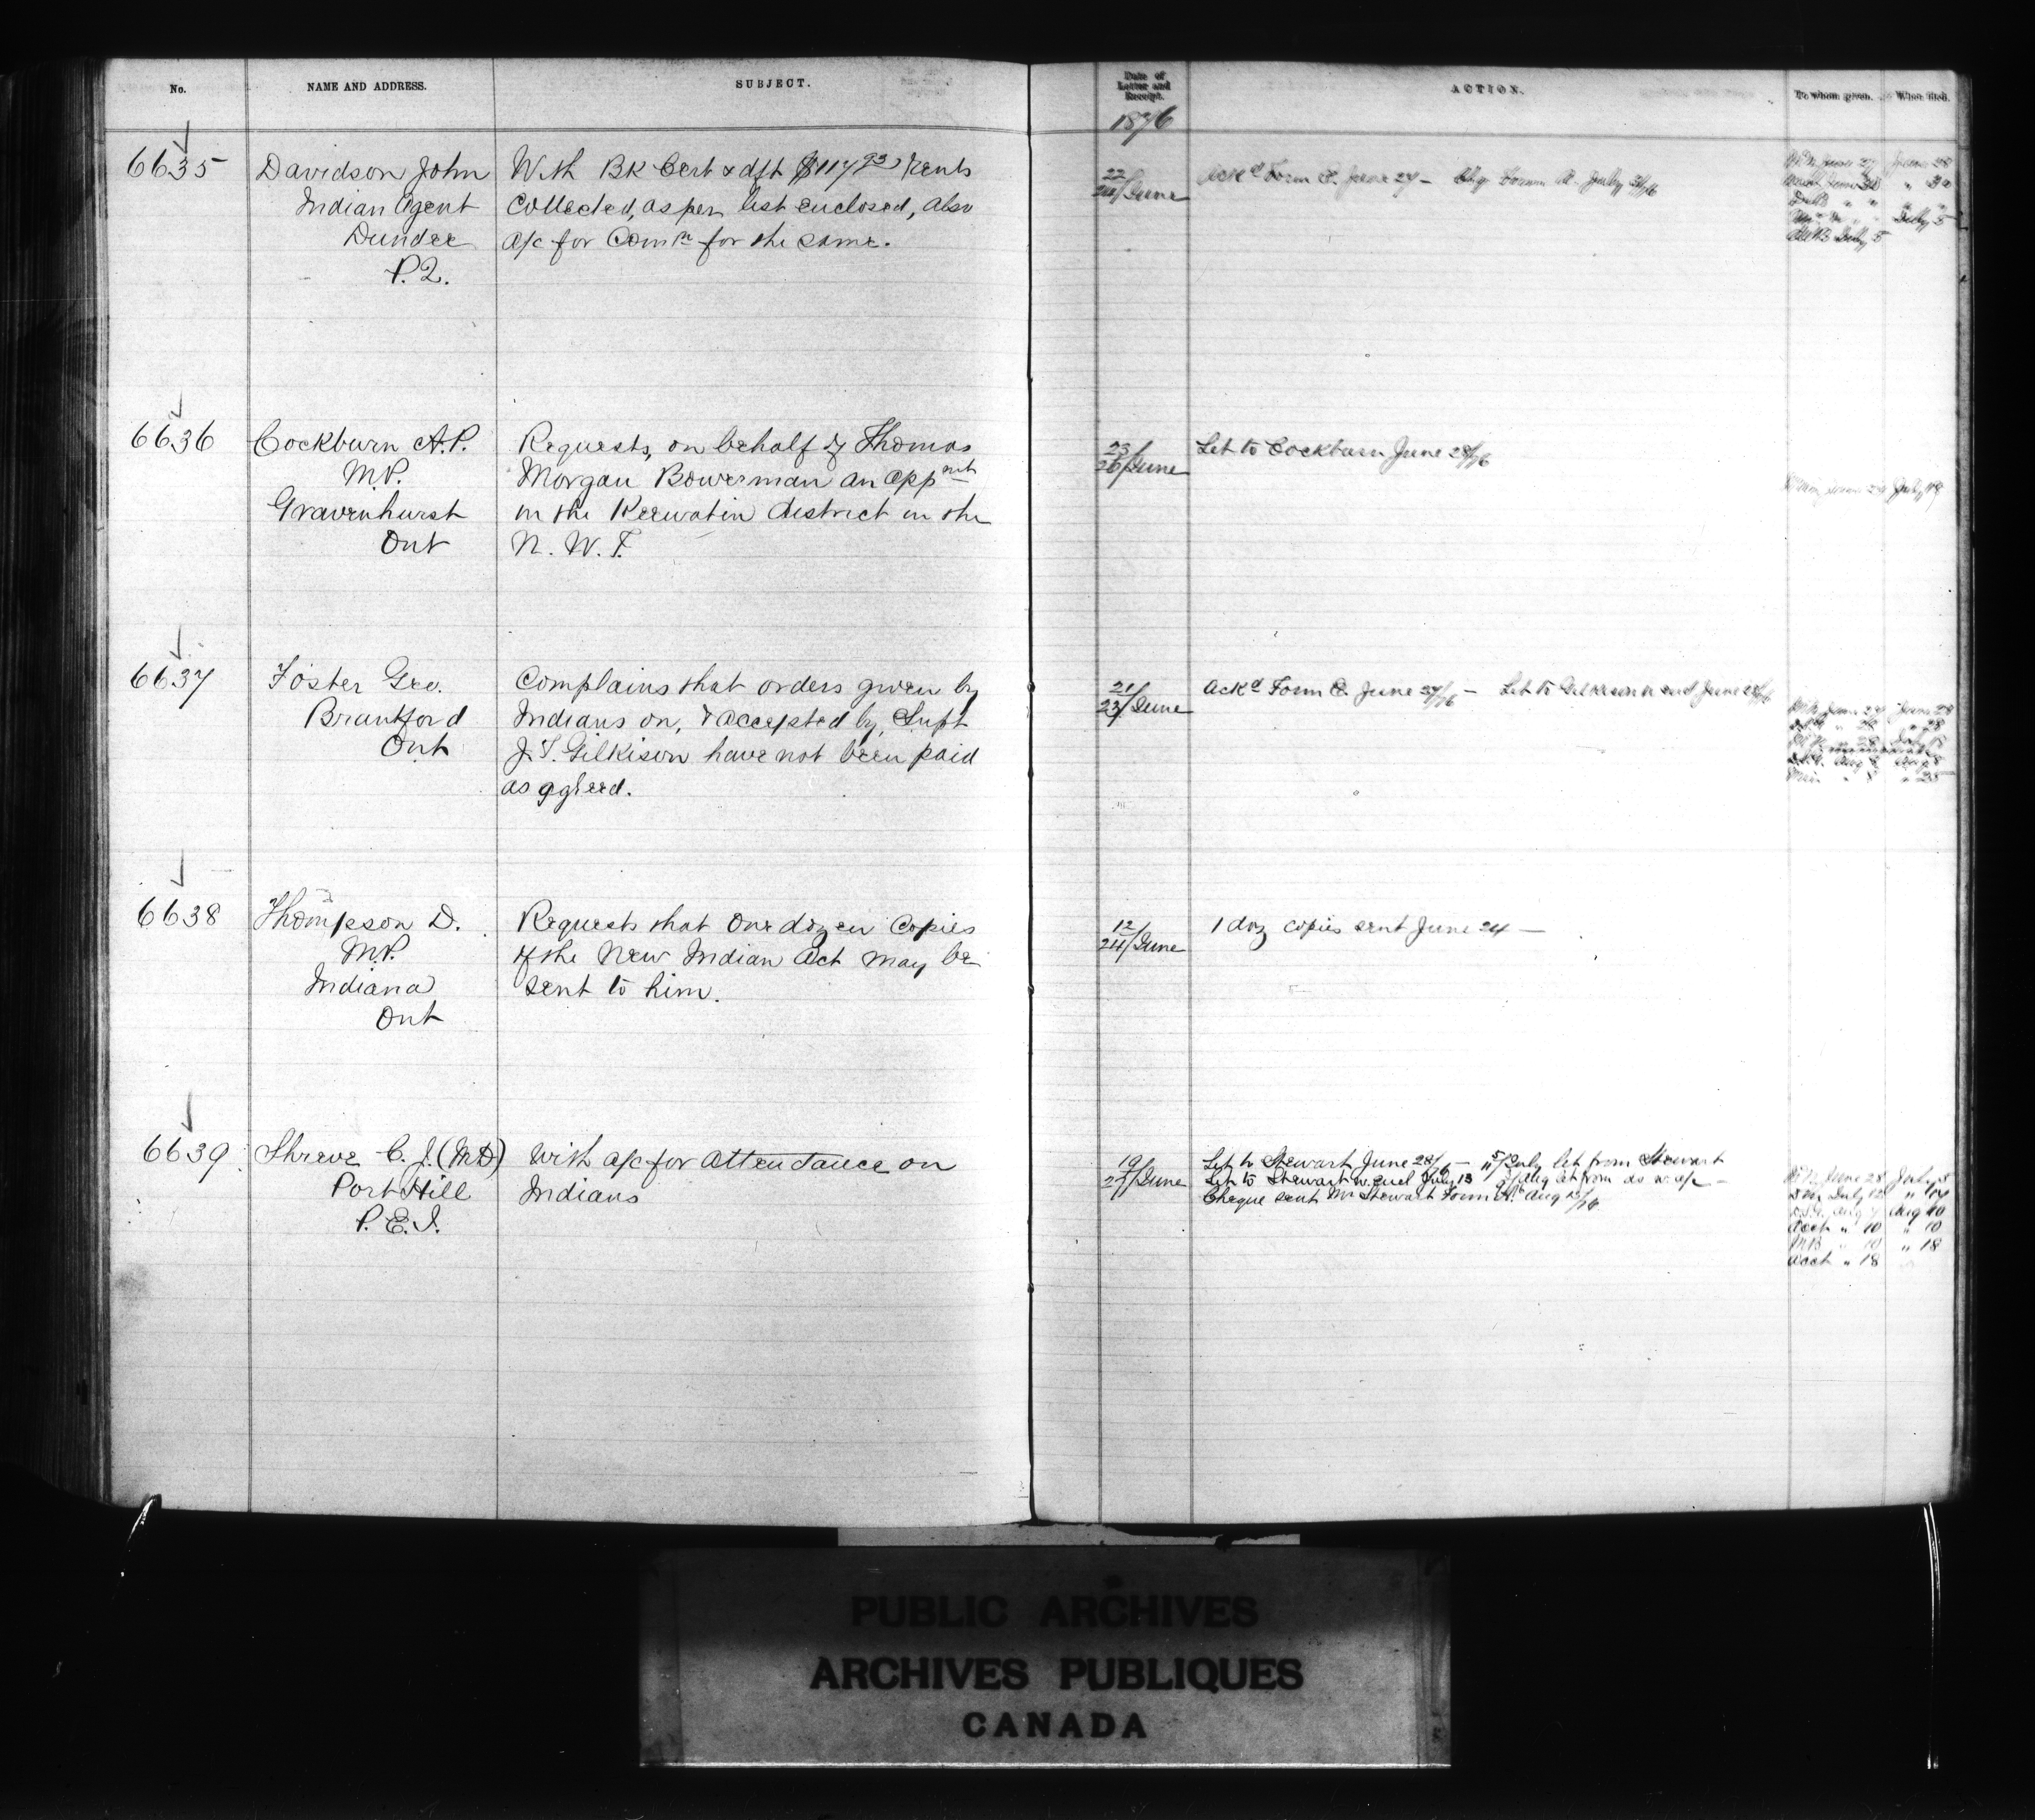 No.
NAME AND ADDRESS.
SUBJECT.
Date of
Letter and
Receipt.
ACTION.
To whom given.
When filed.
1876
6635
Davidson John
Indian Agent
Dundee
P.Q.
With Bk Cert & dft $117 93 rents
collected, as per list enclosed, also
a/c for Comn for the same.
22/
24/June
Ackd Form C. June 27 —
6636
Cockburn A.P.
M.P.
Gravenhurst
Ont
Requests, on behalf of Thomas
Morgan Bowerman an appnt
in the Keewatin district in the
N. W. T.
23/
26/June
Let to Cockburn June 28/76
6637
Foster Geo.
Brantford
Ont
Complains that orders given by
Indians on, & accepted by, Supt
J.T. Gilkison have not been paid
as agreed.
21/
23/June
Ackd Form C. June 27/76 — Let to Gilkison
6638
Thompson D.
M.P.
Indiana
Ont
Requests that one dozen copies
of the New Indian Act may be
sent to him.
12/
24/June
1 doz copies sent June 24 —
6639
Shreve C. J. (MD)
Port Hill
P. E. I.
With a/c for attendance on
Indians
19/
27/June
Let to Stewart June 28/76 — July let from Stewart
Let to Stewart w. encl July 13
Cheque sent Mr Stewart Form A. Aug
June 28 July
July 12 " 14
Aug Aug 10
Acct " 10 " 10
MB " 10 " 18
Acct " 18
PUBLIC ARCHIVES
ARCHIVES PUBLIQUES
CANADA